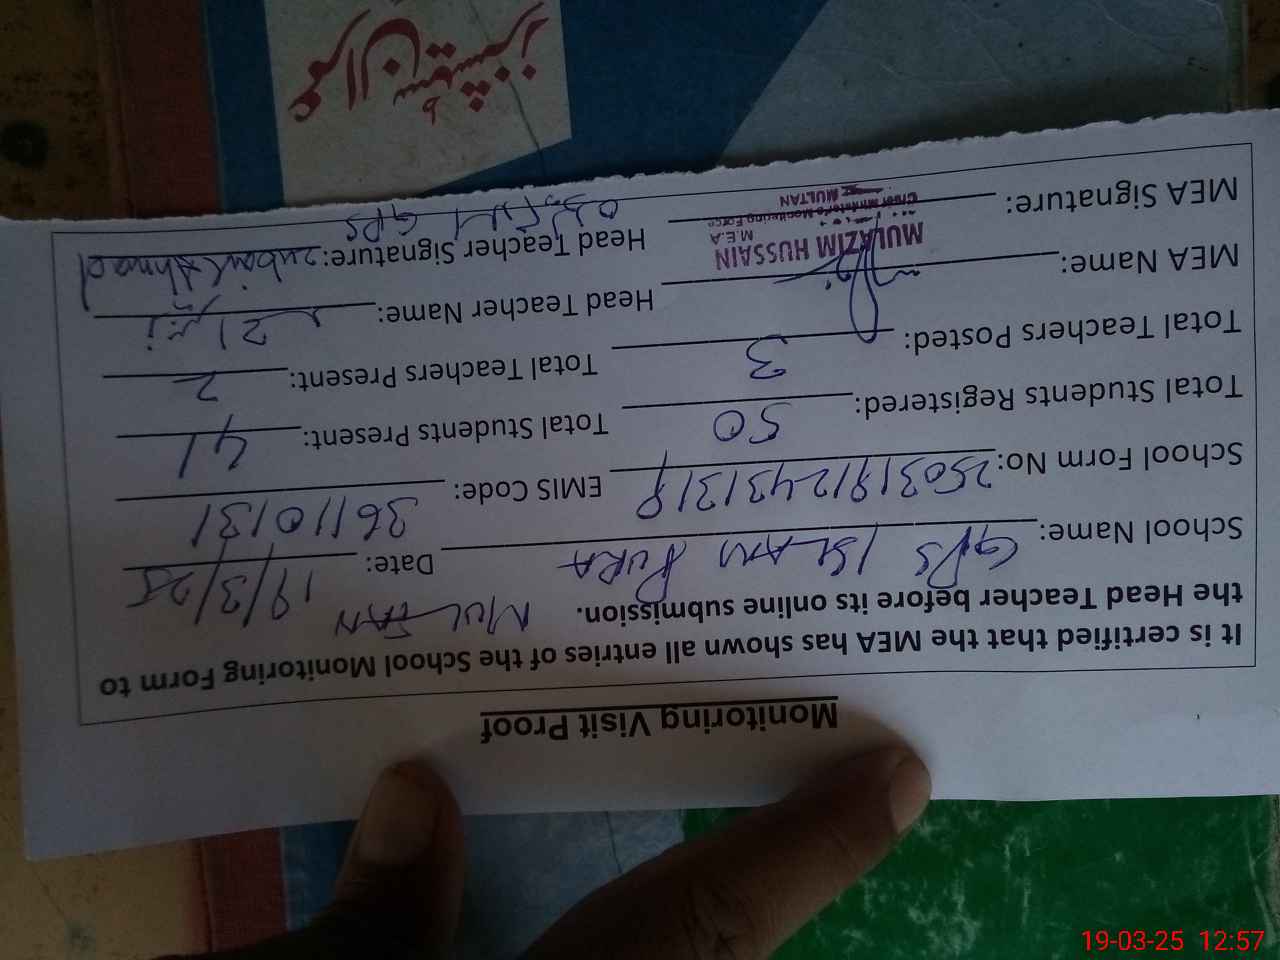 Monitoring Visit Proof
It is certified that the MEA has shown all entries of the School Monitoring Form to
the Head Teacher before its online submission. MULTAN
School Name: GPS ISLAM PURA Date: 19/3/25
School Form No: EMIS Code: 36110131
Total Students Registered: 50 Total Students Present: 41
Total Teachers Posted: 3 Total Teachers Present: 2
MEA Name: Head Teacher Name:
MULAZIM HUSSAIN
M.E.A
Chief Minister's Monitoring Force
MULTAN
MEA Signature: Head Teacher Signature: Zubair Ahmad
GPS
19-03-25 12:57